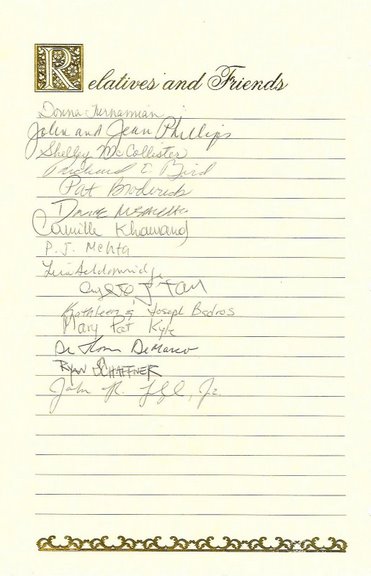 Relatives and Friends
Donna
John and Jean Phillips
Shelley McCollister
Richard C. Bird
Pat Broderick
Camille Khawand
P. J. Mehta
Kathleen & Joseph Bedros
Mary Pat Kyle
Dr. Thom DeMarco
RYAN SCHAFFNER
John R. Jr.